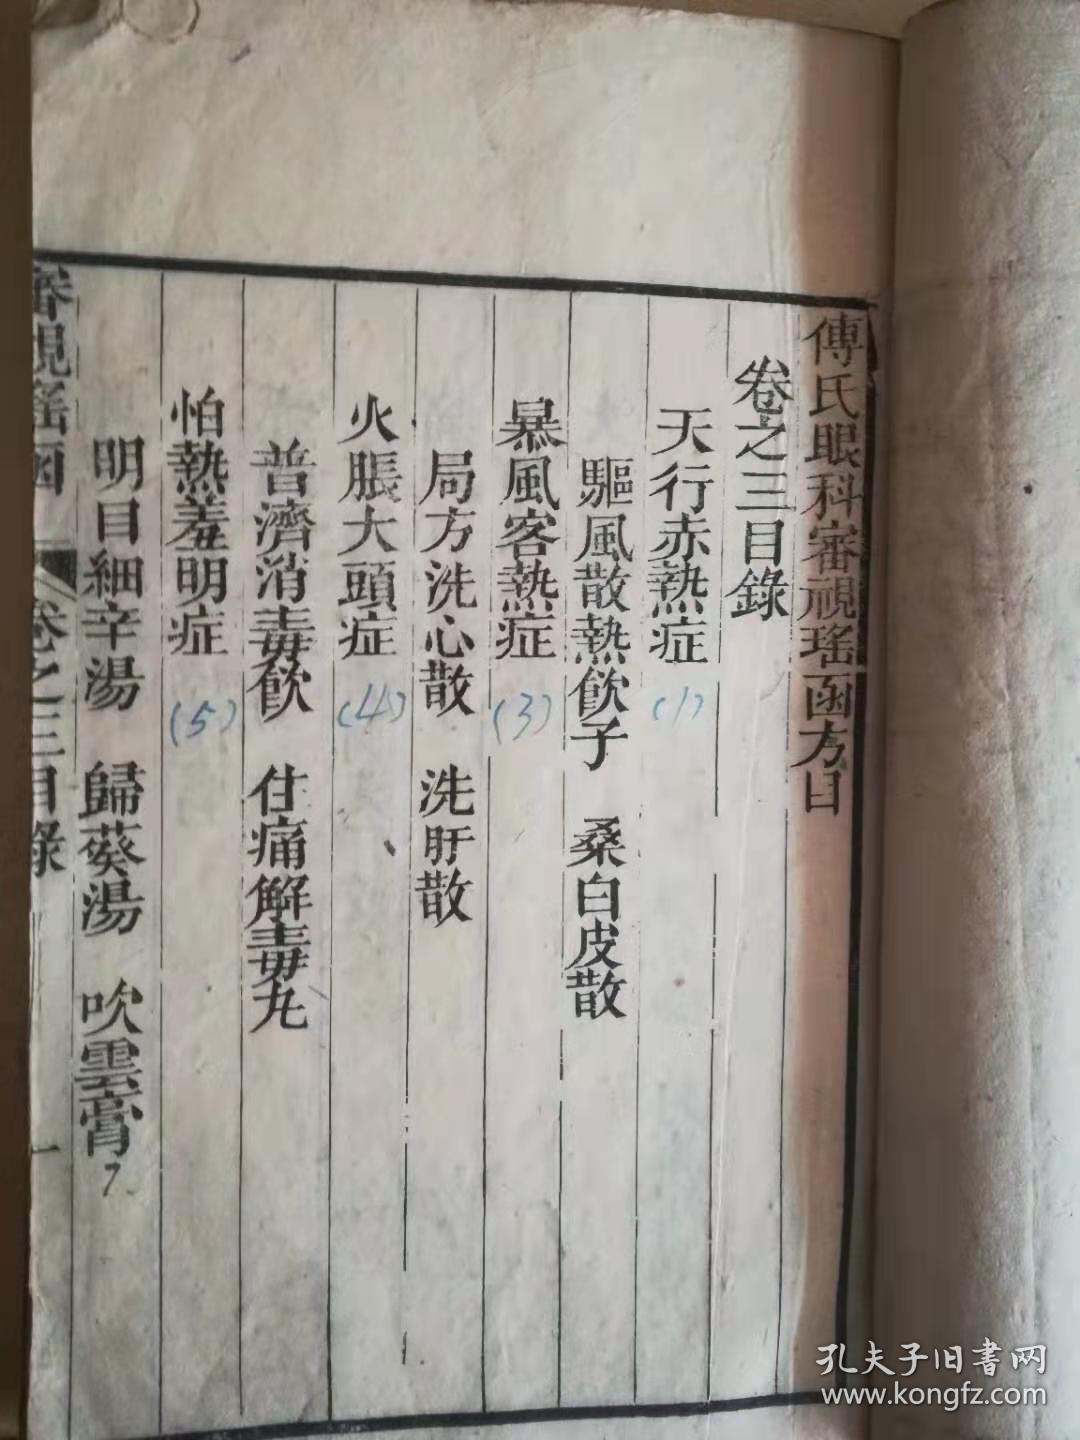 傅氏眼科審視瑤函方目
卷之三目錄
天行赤熱症 (1)
驅風散熱飲子 桑白皮散
暴風客熱症 (3)
局方洗心散 洗肝散
火脹大頭症 (4)
普濟消毒飲 住痛解毒丸
怕熱羞明症 (5)
明目細辛湯 歸葵湯 吹雲膏 7
審視瑤函 卷之三目錄 一
孔夫子旧書网
www.kongfz.com